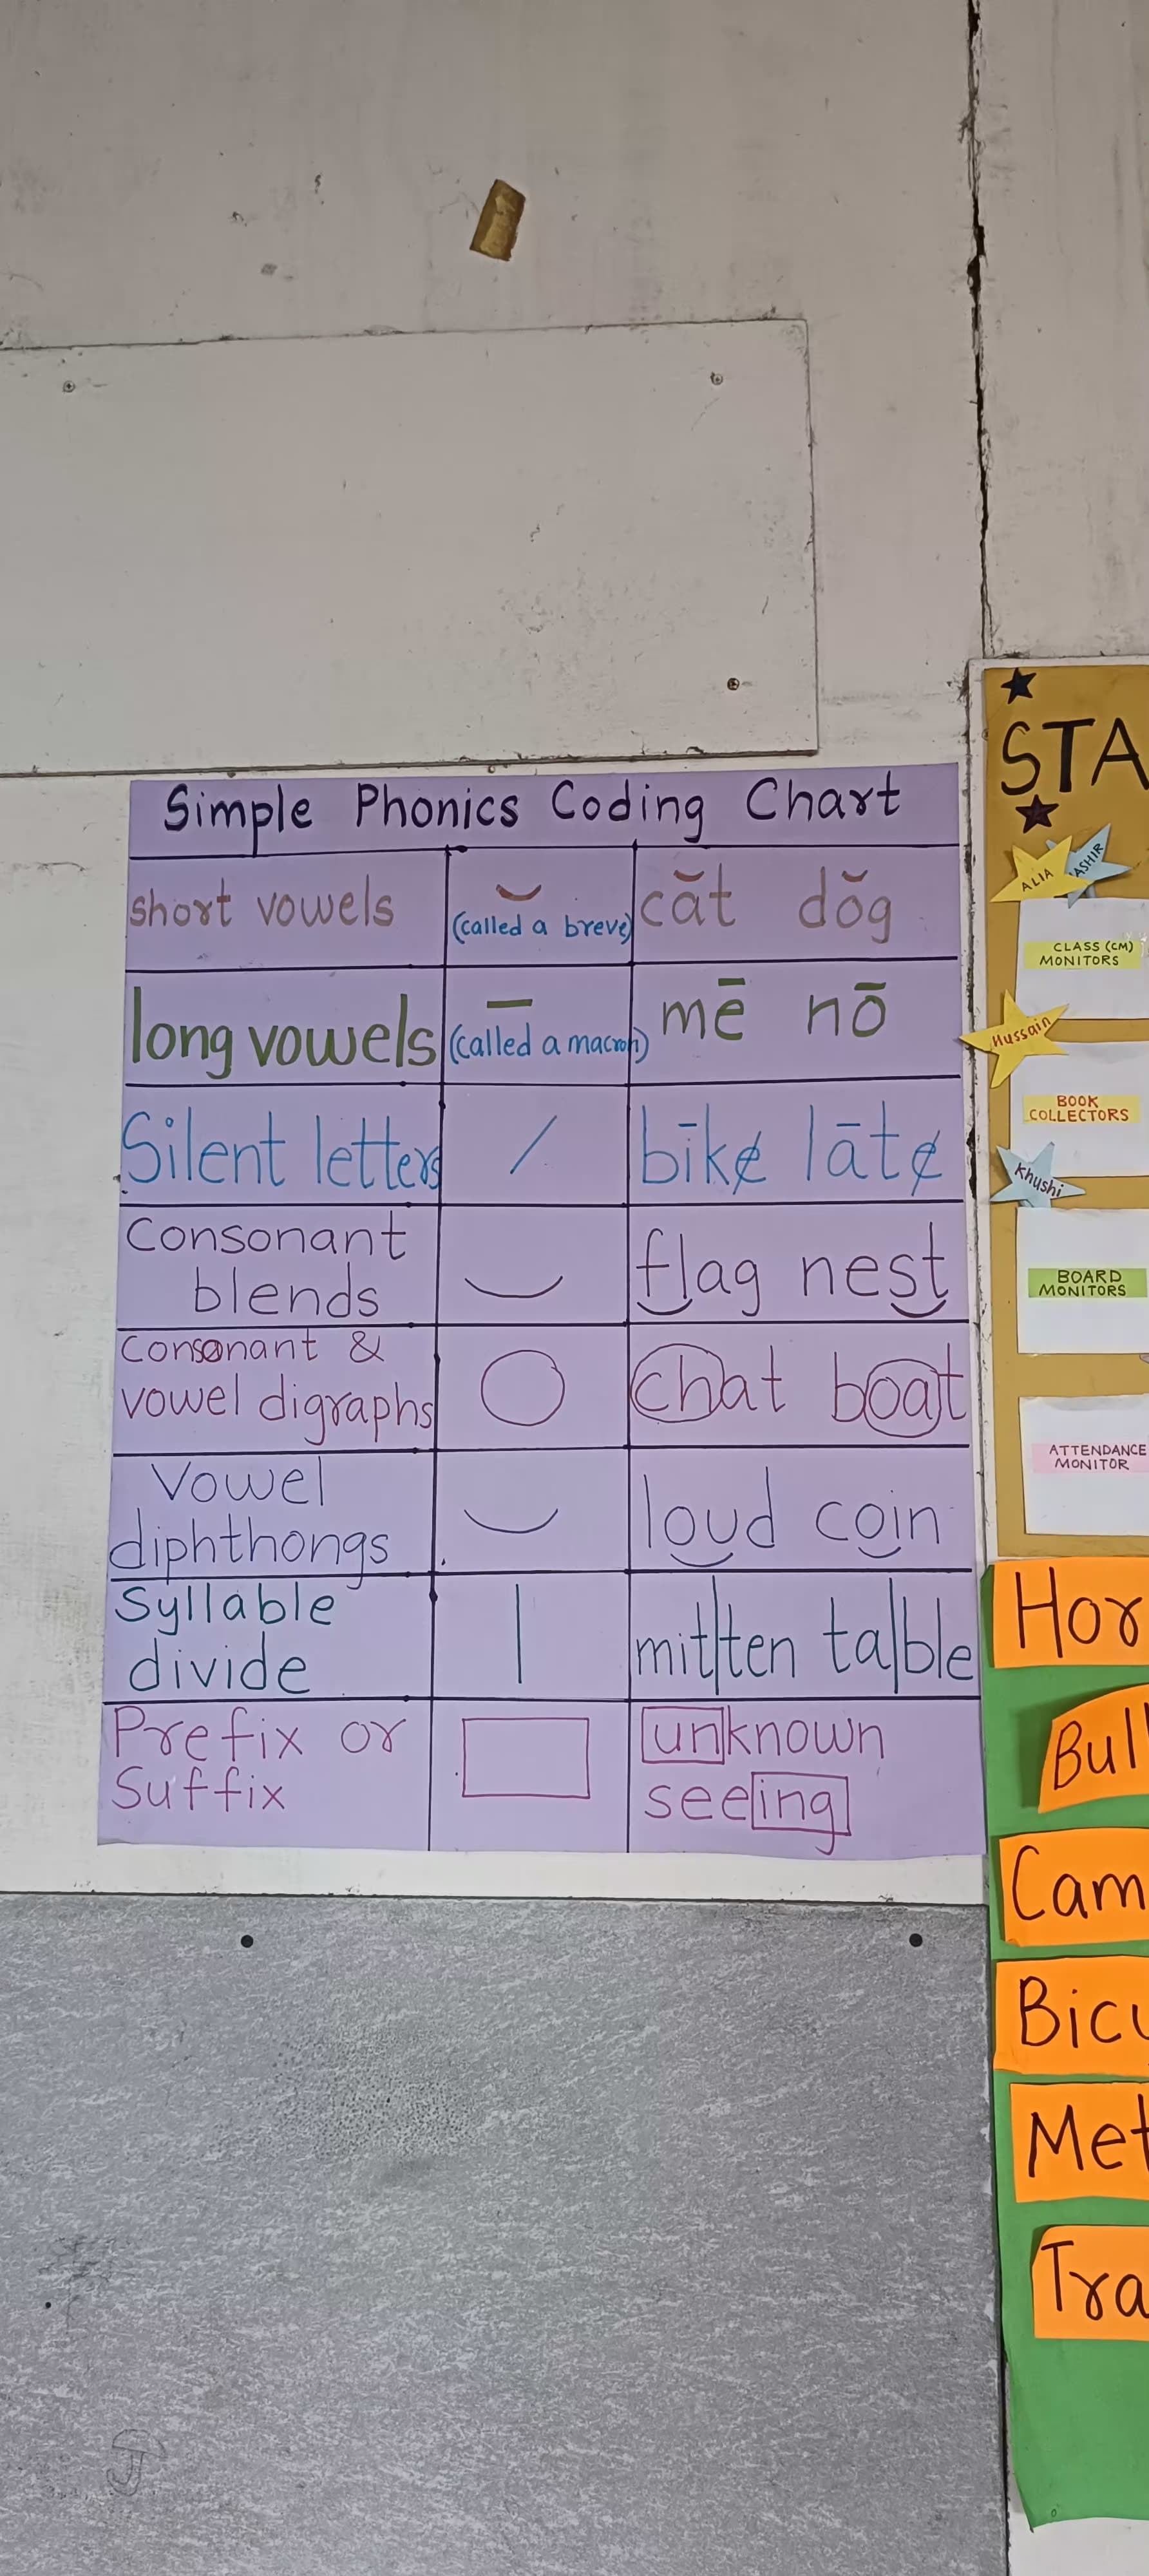 Simple Phonics Coding Chart
short vowels (called a breve) căt dŏg
long vowels (called a macron) mē nō
Silent letters / bīke̸ lāte̸
Consonant
blends
flag nest
Consonant &
vowel digraphs
chat boat
Vowel
diphthongs
loud coin
Syllable
divide
|
mit|ten ta|ble
Prefix or
Suffix
unknown
seeing
STA
ALIA
ASHIR
CLASS (CM)
MONITORS
Hussain
BOOK
COLLECTORS
Khushi
BOARD
MONITORS
ATTENDANCE
MONITOR
Hor
Bul
Cam
Bicy
Met
Tra